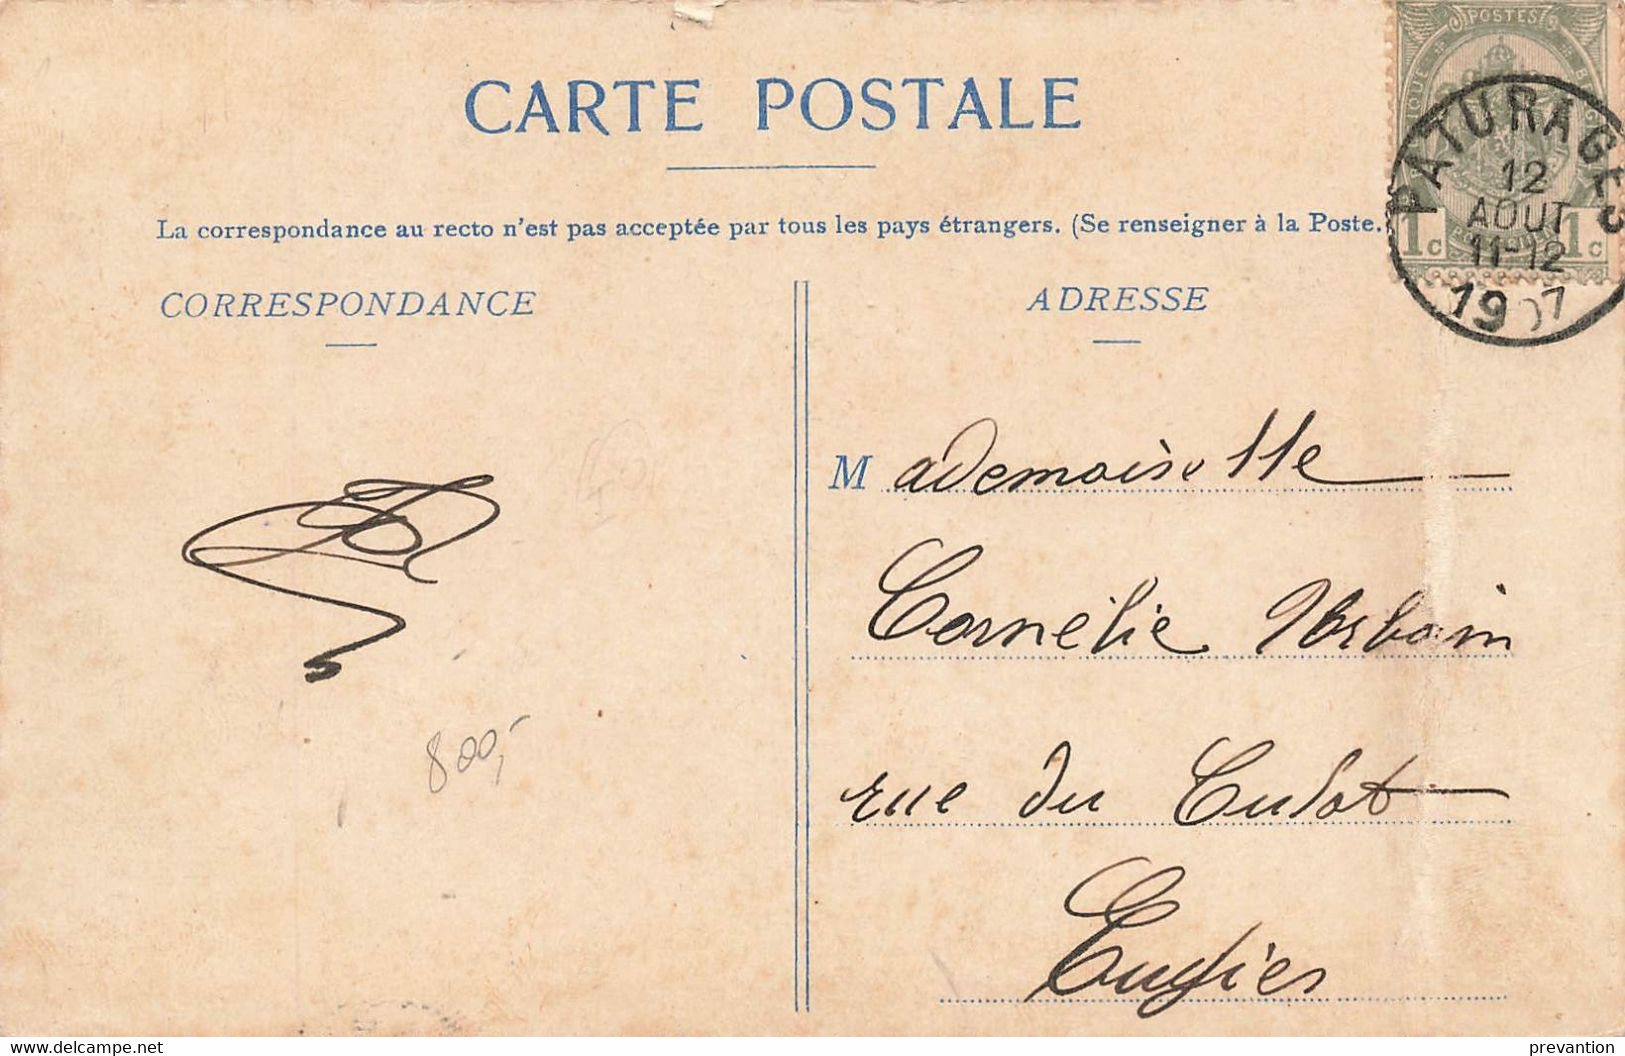 CARTE POSTALE
La correspondance au recto n'est pas acceptée par tous les pays étrangers. (Se renseigner à la Poste.
CORRESPONDANCE
ADRESSE
POSTES
1c 1c
PATURAGES
12
AOUT
11-12
1907
Mademoiselle
Cornélie Urbain
rue du Culot
Cuesmes
800,-
delcampe.net
prevantion